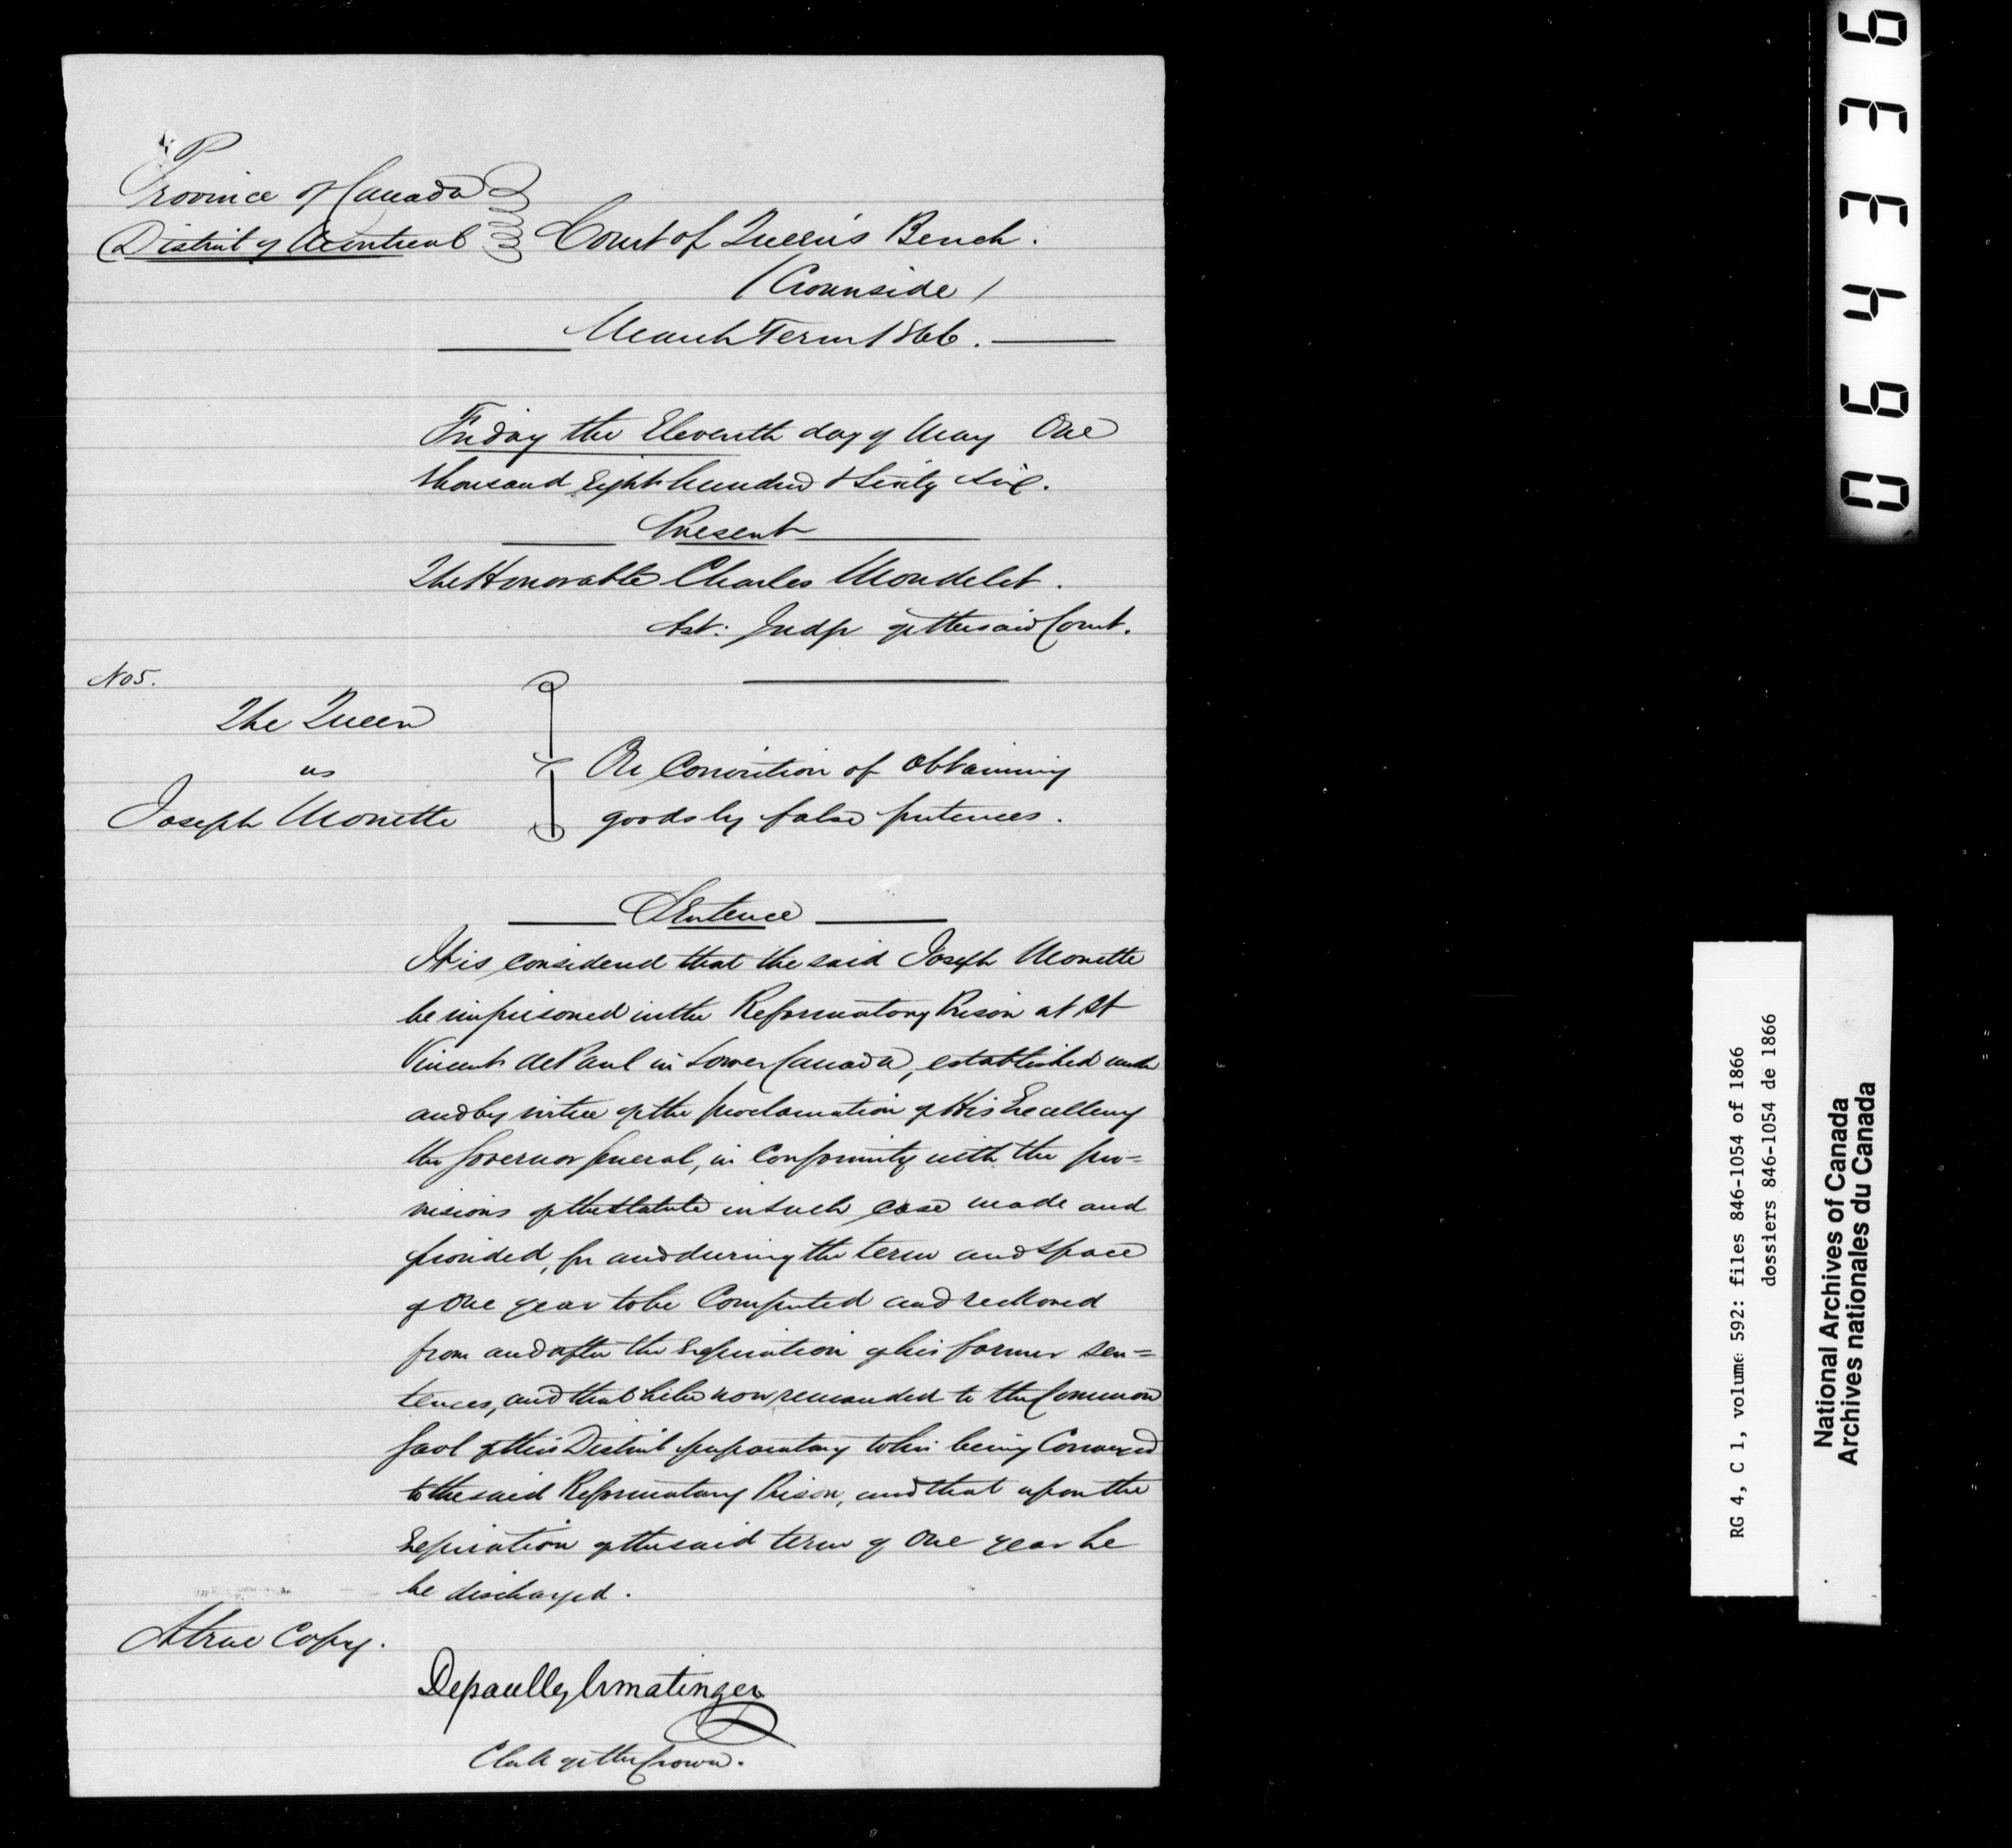 Province of Canada
District of Montreal
Court of Queen's Bench.
(Crown side)
March Term 1866.
Friday the Eleventh day of May One
thousand Eight hundred & Sixty Six.
Present
The Honorable Charles Mondelet.
Ast: Judge of the said Court.
No 5.
The Queen
vs
Joseph Monette
On Conviction of obtaining
goods by false pretences.
Sentence
It is considered that the said Joseph Monette
be imprisoned in the Reformatory Prison at St
Vincent de Paul in Lower Canada, established under
and by virtue of the proclamation of His Excellency
the Governor General, in Conformity with the pro=
visions of the Statute in such case made and
provided, for and during the term and space
of One year to be Computed and reckoned
from and after the Expiration of his former Sen=
tences, and that he be now remanded to the Common
Gaol of this District preparatory to his being Conveyed
to the said Reformatory Prison, and that upon the
Expiration of the said term of One year he
be discharged.
A true Copy.
Depaully Ermatinger
Clerk of the Crown.
064336
RG 4, C 1, volume 592: files 846-1054 of 1866
dossiers 846-1054 de 1866
National Archives of Canada
Archives nationales du Canada